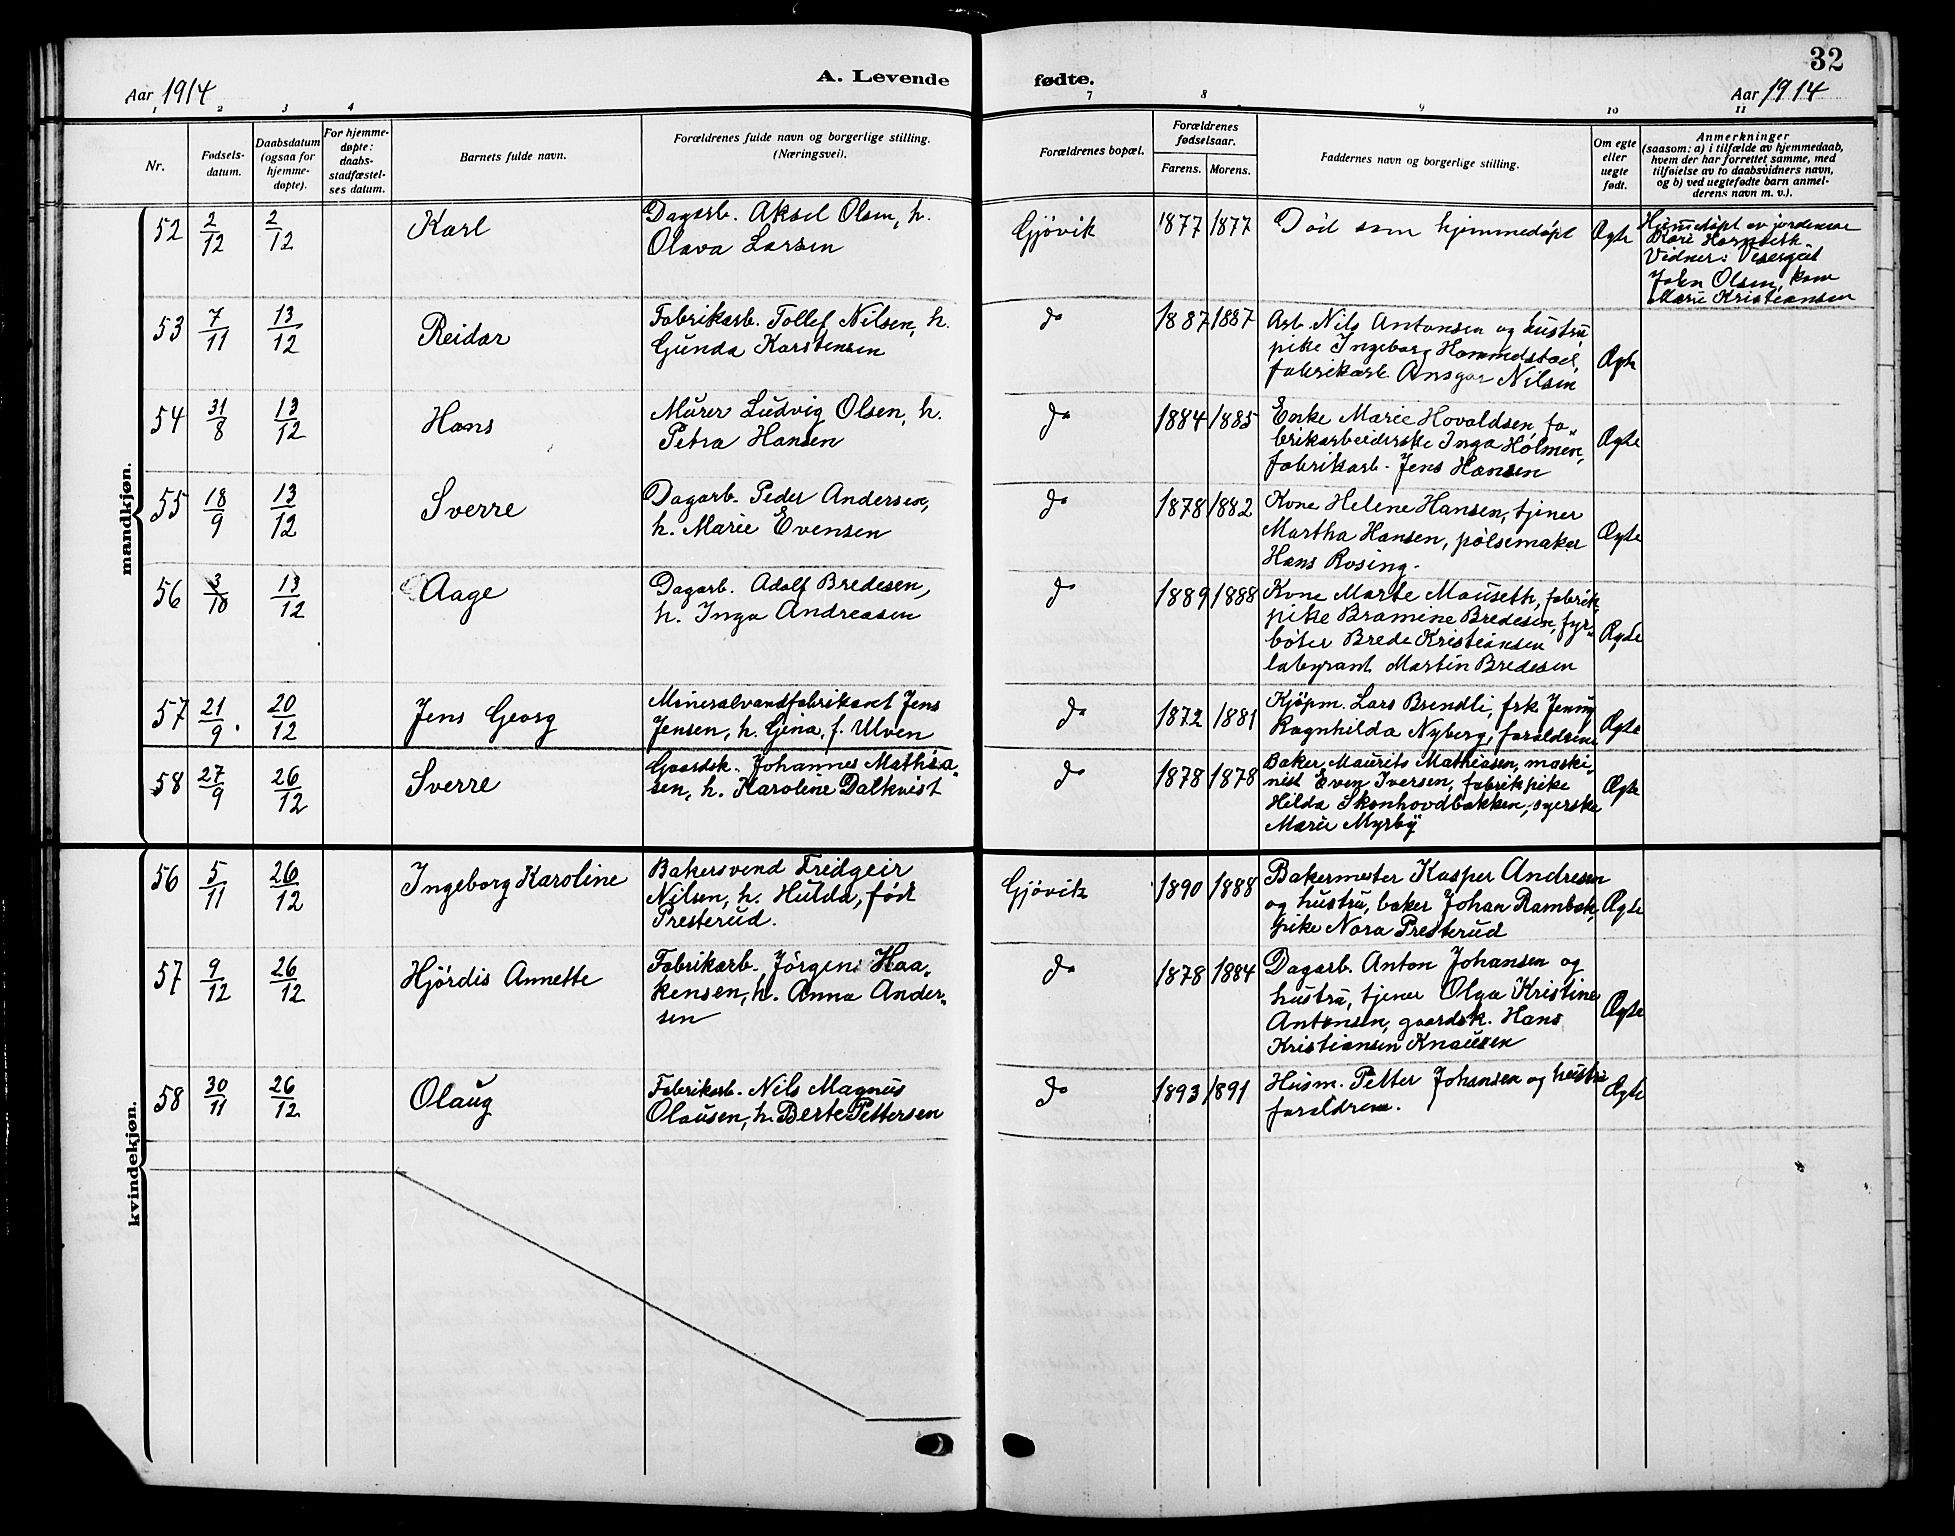 32
A. Levende fødte.
Aar 1914
Aar 1914
1 2 3 4 7 8 9 10 11
Nr.
Fødsels-
datum.
Daabsdatum
(ogsaa for
hjemme-
døpte).
For hjemme-
døpte:
daabs-
stadfæstel-
ses datum.
Barnets fulde navn.
Forældrenes fulde navn og borgerlige stilling.
(Næringsvei).
Forældrenes bopæl.
Forældrenes
fødselsaar.
Farens. Morens.
Faddernes navn og borgerlige stilling.
Om egte
eller
uegte
født.
Anmerkninger
(saasom: a) i tilfælde av hjemmedaab,
hvem der har forrettet samme, med
tilføielse av to daabsvidners navn,
og b) ved uegtefødte barn anmel-
derens navn m. v.).
mandkjøn.
52 2/12 2/12 Karl
Dagarb. Aksel Olsen, h.
Olava Larsen
Gjövik 1877 1877
Död som hjemmedöpt
Ægte
Hjemmedöpt av jordemor
Vidner:
John Olsen, kone
Marie Kristiansen
53 7/11 13/12 Reidar
Fabrikarb. Tollef Nilsen, h.
Gunda Karstensen
do 1887 1887
Arb. Nils Antonsen og hustru
pike Ingeborg Hammerstad,
fabrikarb. Ansgar Nilsen
Ægte
54 31/8 13/12 Hans
Murer Ludvig Olsen, h.
Petra Hansen
do 1884 1885
Enke Marie Hovaldsen, fa-
brikarbeiderske Inga Holmen,
fabrikarb. Jens Hansen
Ægte
55 18/9 13/12 Sverre
Dagarb. Peder Andersen,
h. Marie Evensen
do 1878 1882
Kone Helene Hansen, tjener
Martha Hansen, pölsemaker
Hans Rosing.
Ægte
56 3/10 13/12 Aage
Dagarb. Adolf Bredesen,
h. Inga Andreasen
do 1889 1888
Kone Marte Mauseth, fabrik-
pike Bramine Bredesen, fyr-
böter Brede Kristiansen
Martin Bredesen
Ægte
57 21/9. 20/12 Jens Georg
Mineralvandfabrikant Jens
Jensen, h. Gina, f. Ulven
do 1872 1881
Kjöpm. Lars Brendli, frk Jenny
Ragnhilda Nyberg, forældrene
Ægte
58 27/9 26/12 Sverre
Gaardsk. Johannes Mathia-
sen, h. Karoline Dalkvist
do 1878 1878
Baker Maurits Mathiasen, maski-
nist Even Iversen, fabrikpike
Hilda Skonhovdbakken, syerske
Marie Myrby
Ægte
kvindekjøn.
56 5/11 26/12 Ingeborg Karoline
Bakersvend Fridgeir
Nilsen, h. Hulda, föd
Presterud.
Gjövik 1890 1888
Bakermester Kasper Andresen
og hustru, baker Johan Rambek,
pike Nora Presterud
Ægte
57 9/12 26/12 Hjördis Annette
Fabrikarb. Jörgen Haa-
kensen, h. Anna Ander-
sen
do 1878 1884
Dagarb. Anton Johansen og
hustru, tjener Olga Kristine
Antonsen, gaardsk. Hans
Kristiansen Knausen
Ægte
58 30/11 26/12 Olaug
Fabrikarb. Nils Magnus
Olausen, h. Berte Pettersen
do 1893 1891
Husm. Petter Johansen og hustru
forældrene.
Ægte